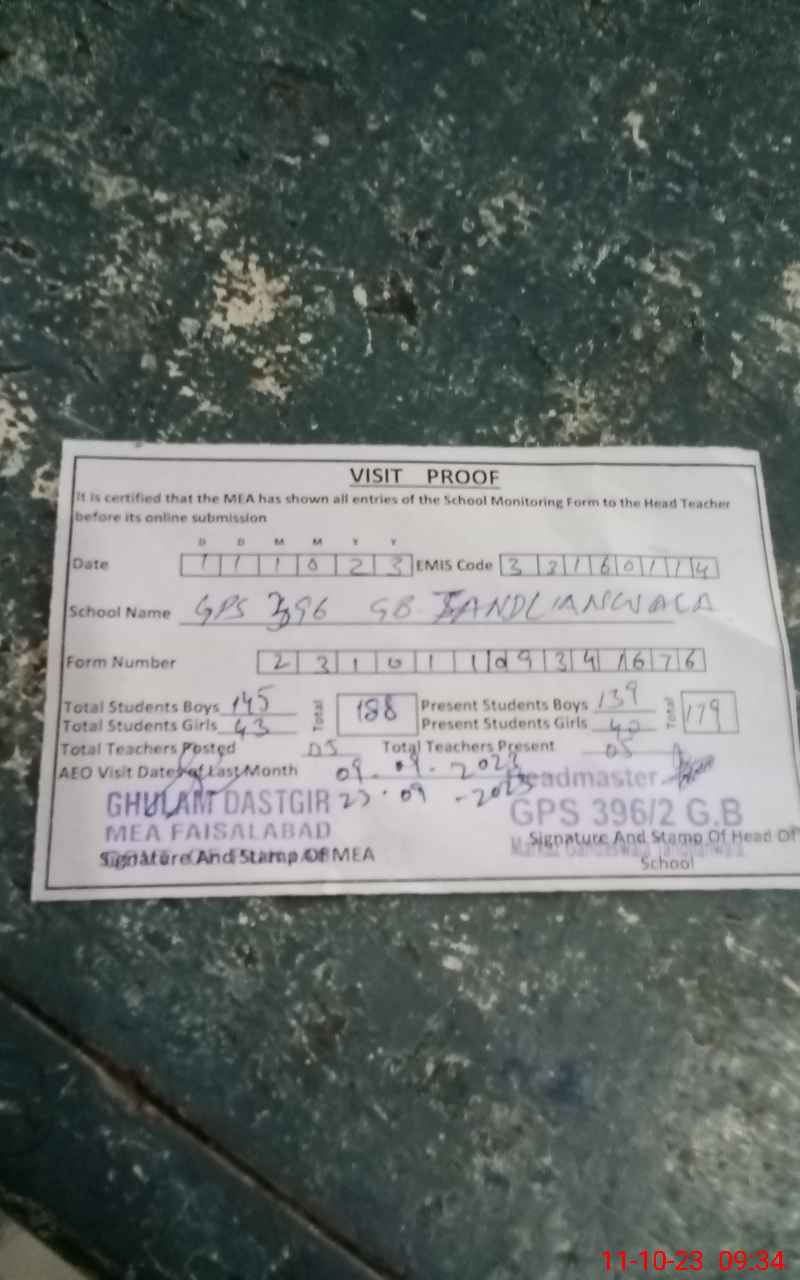 VISIT PROOF
It is certified that the MEA has shown all entries of the School Monitoring Form to the Head Teacher
before its online submission
D D M M Y Y
Date 1 1 1 0 2 3 EMIS Code 3 3 1 6 0 1 1 4
School Name GPS 396 GB
Form Number 2 3 1 0 1 1 0 9 3 4 1 6 7 6
Total Students Boys 145 Total 188 Present Students Boys 139 Total 179
Total Students Girls 43 Present Students Girls 40
Total Teachers Posted 05 Total Teachers Present 05
AEO Visit Dates of Last Month 09.09.2023
23.09-2023
Headmaster
GHULAM DASTGIR GPS 396/2 G.B
MEA FAISALABAD
Signature And Stamp Of MEA Signature And Stamp Of Head Of
School
11-10-23 09:34